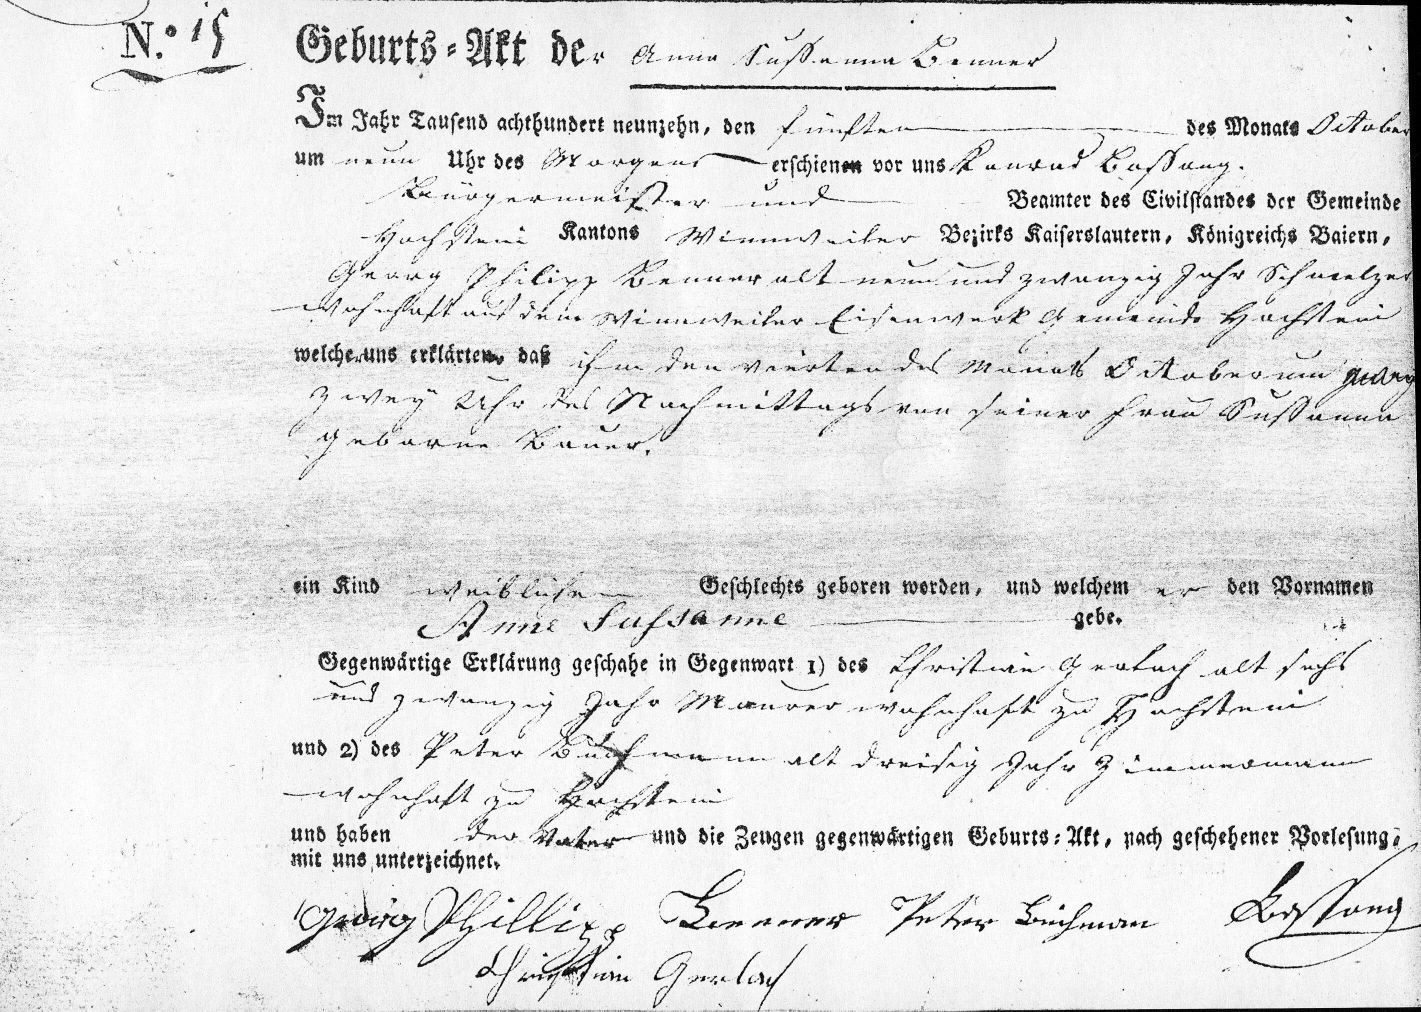 N.º 15
Geburts-Akt der Anna Sussanna Benner
Im Jahr Tausend achthundert neunzehn, den fünften des Monats October
um neun Uhr des Morgens erschienen vor uns Konrad Bossong.
Bürgermeister und Beamter des Civilstandes der Gemeinde
Hochstein Kantons Winnweiler Bezirks Kaiserslautern, Königreichs Baiern,
Georg Philipp Benner alt neun und zwanzig Jahr Schmelzer
wohnhaft auf dem Winnweiler Eisenwerk Gemeinde Hochstein
welche uns erklärten, daß ihm den vierten des Monats October um
zwey Uhr des Nachmittags von seiner Frau Sussanna
geborne Bauer.
ein Kind weiblichen Geschlechts geboren worden, und welchem er den Vornamen
Anne Sussanne gebe.
Gegenwärtige Erklärung geschahe in Gegenwart 1) des Christian Gerlach alt sechs
und zwanzig Jahr Maurer wohnhaft zu Hochstein
und 2) des Peter Buchmann alt dreisig Jahr Zimmermann
wohnhaft zu Hochstein
und haben der Vater und die Zeugen gegenwärtigen Geburts-Akt, nach geschehener Vorlesung,
mit uns unterzeichnet.
Georg Phillipp Benner Peter Buchman Bossong
Christian Gerlach